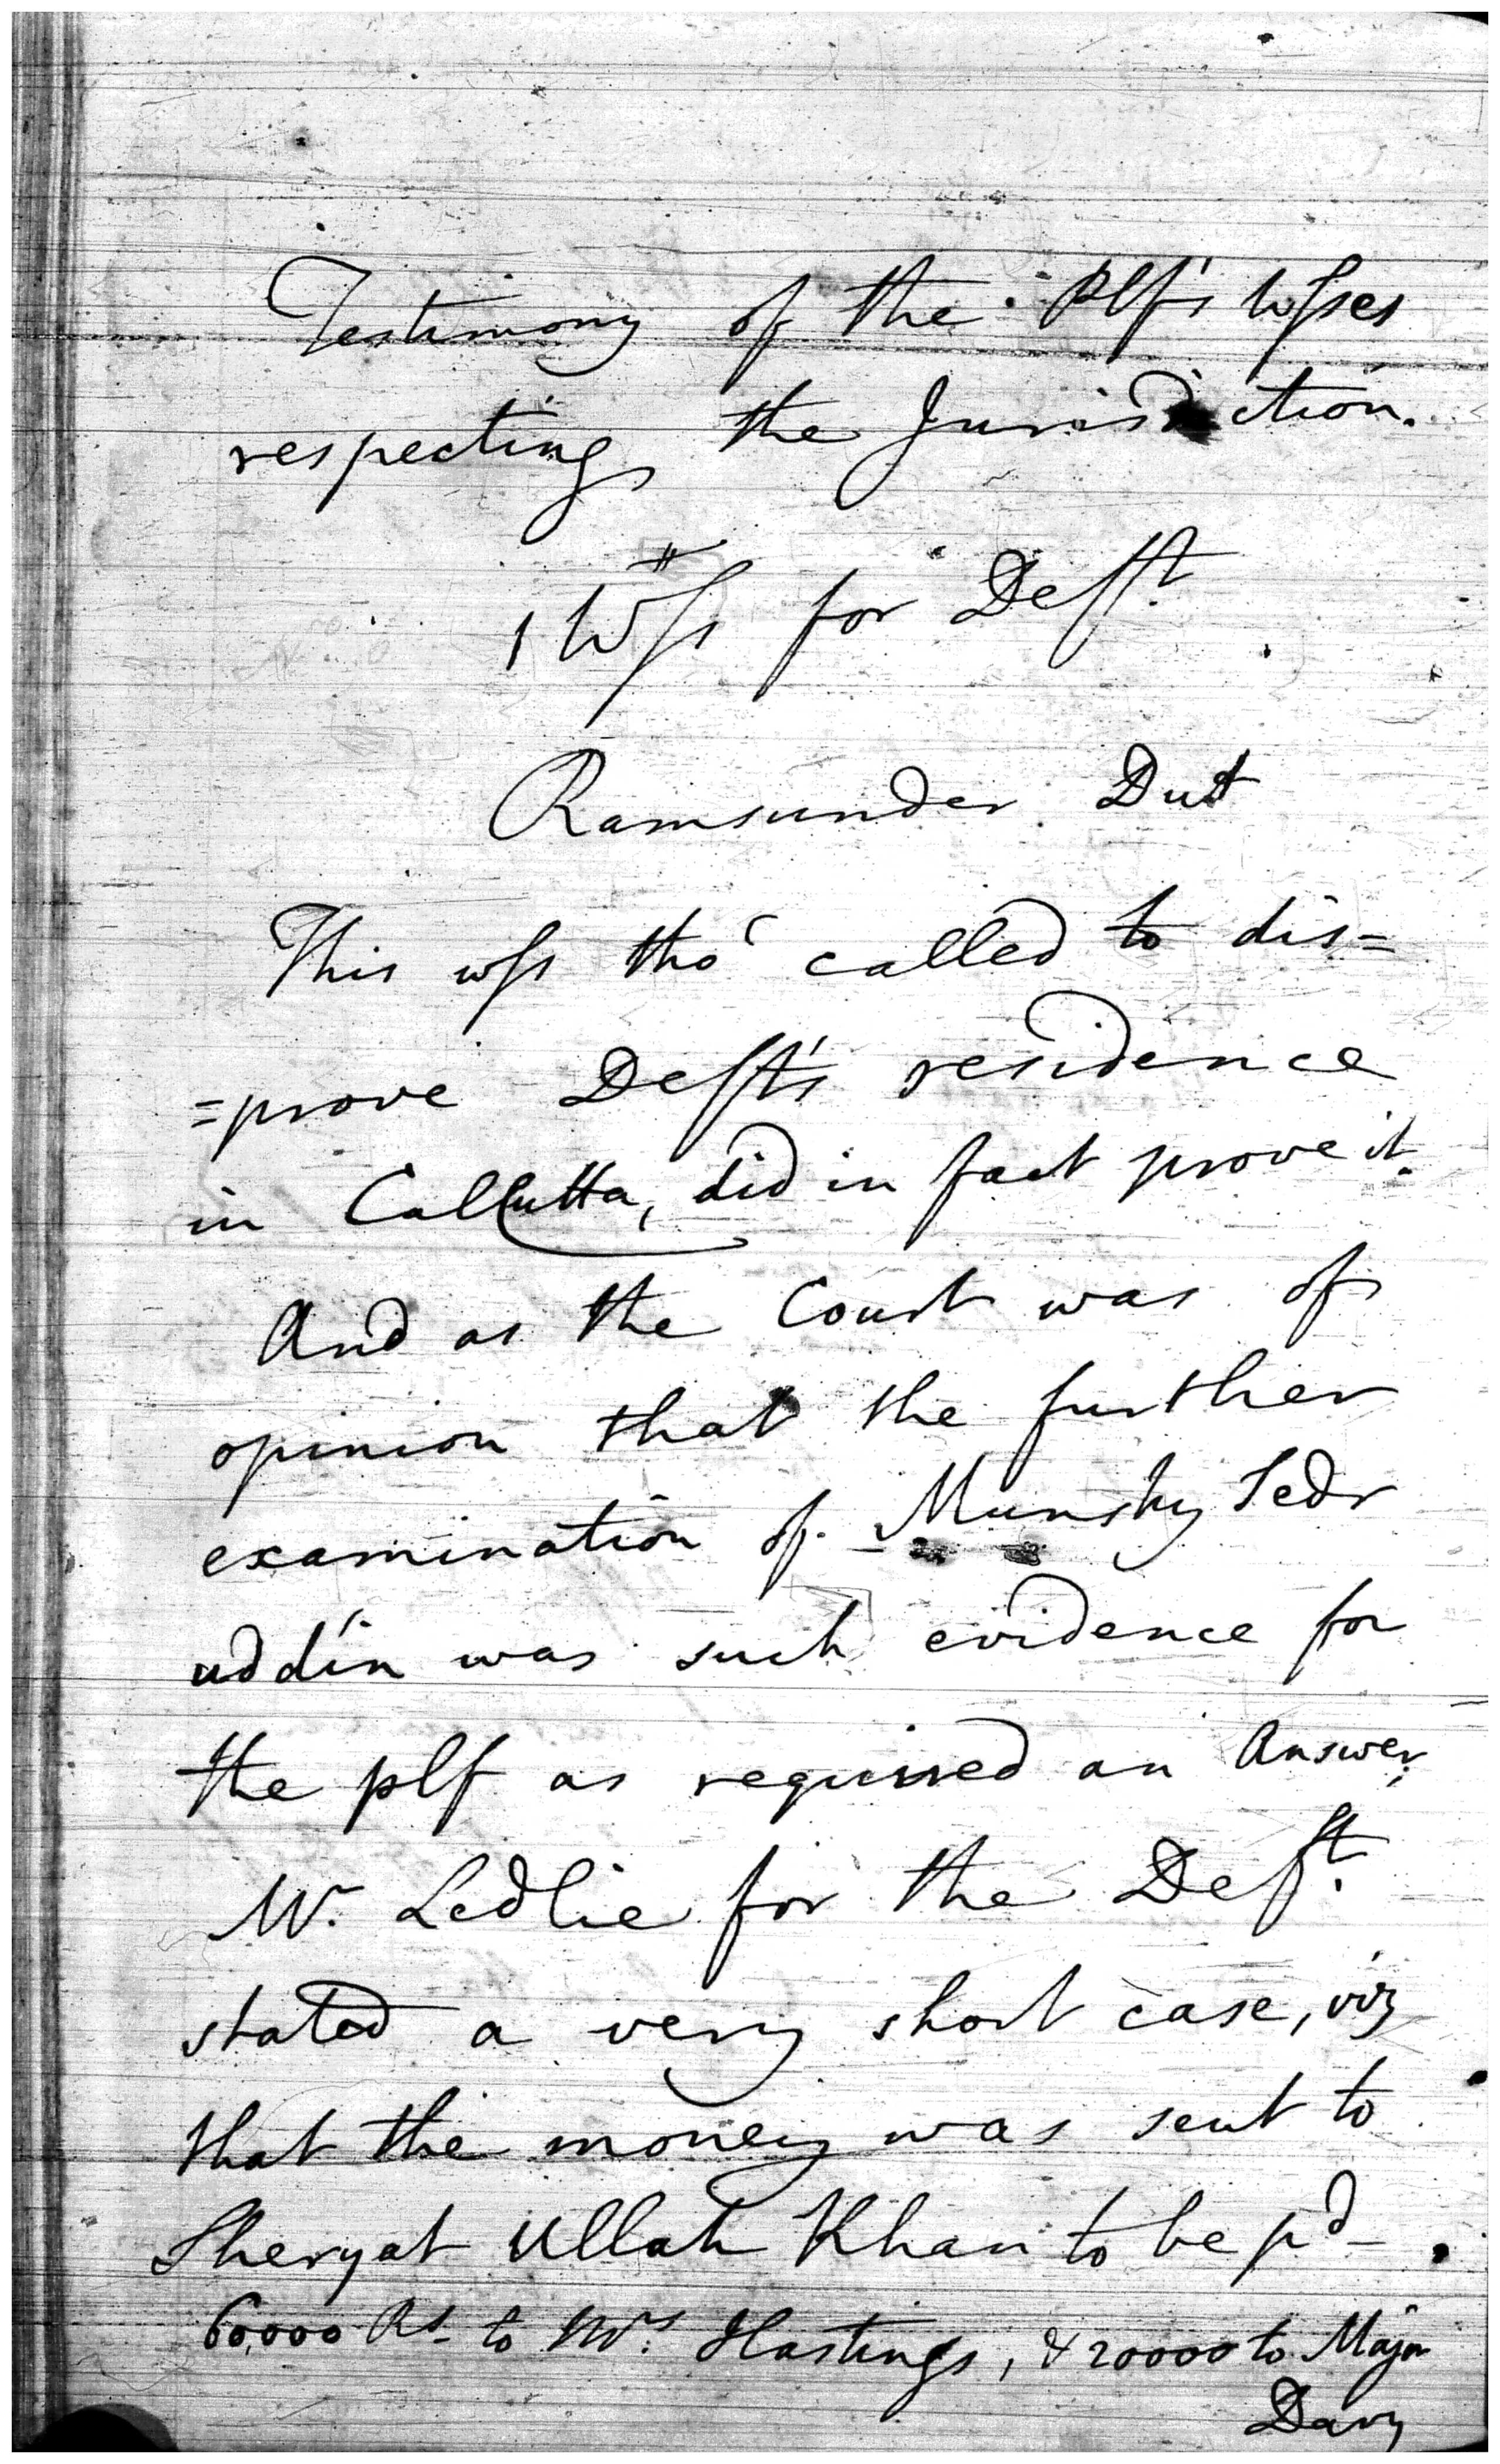 Testimony of the Plf's Wsses
respecting the Jurisdiction.
1 Wss for Deft.
Ramsunder Dut
This wss tho' called to dis=
=prove Deft's residence
in Calcutta, did in fact prove it.
And as the Court was of
opinion that the further
examination of Munshy Sedr
uddin was such evidence for
the plf as required an Answer,
Mr. Ledlie for the Deft.
stated a very short case, viz
that the money was sent to
Sheryat Ullah Khan to be pd
60,000 Rs to Mrs. Hastings, & 20000 to Major
Davy